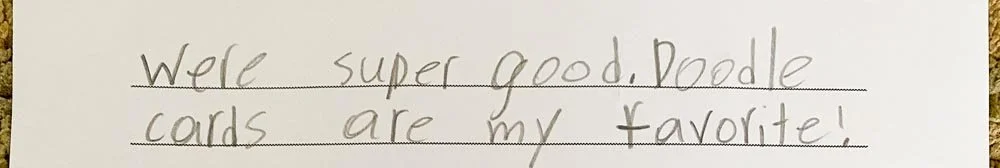 Were super good. Doodle
cards are my favorite!